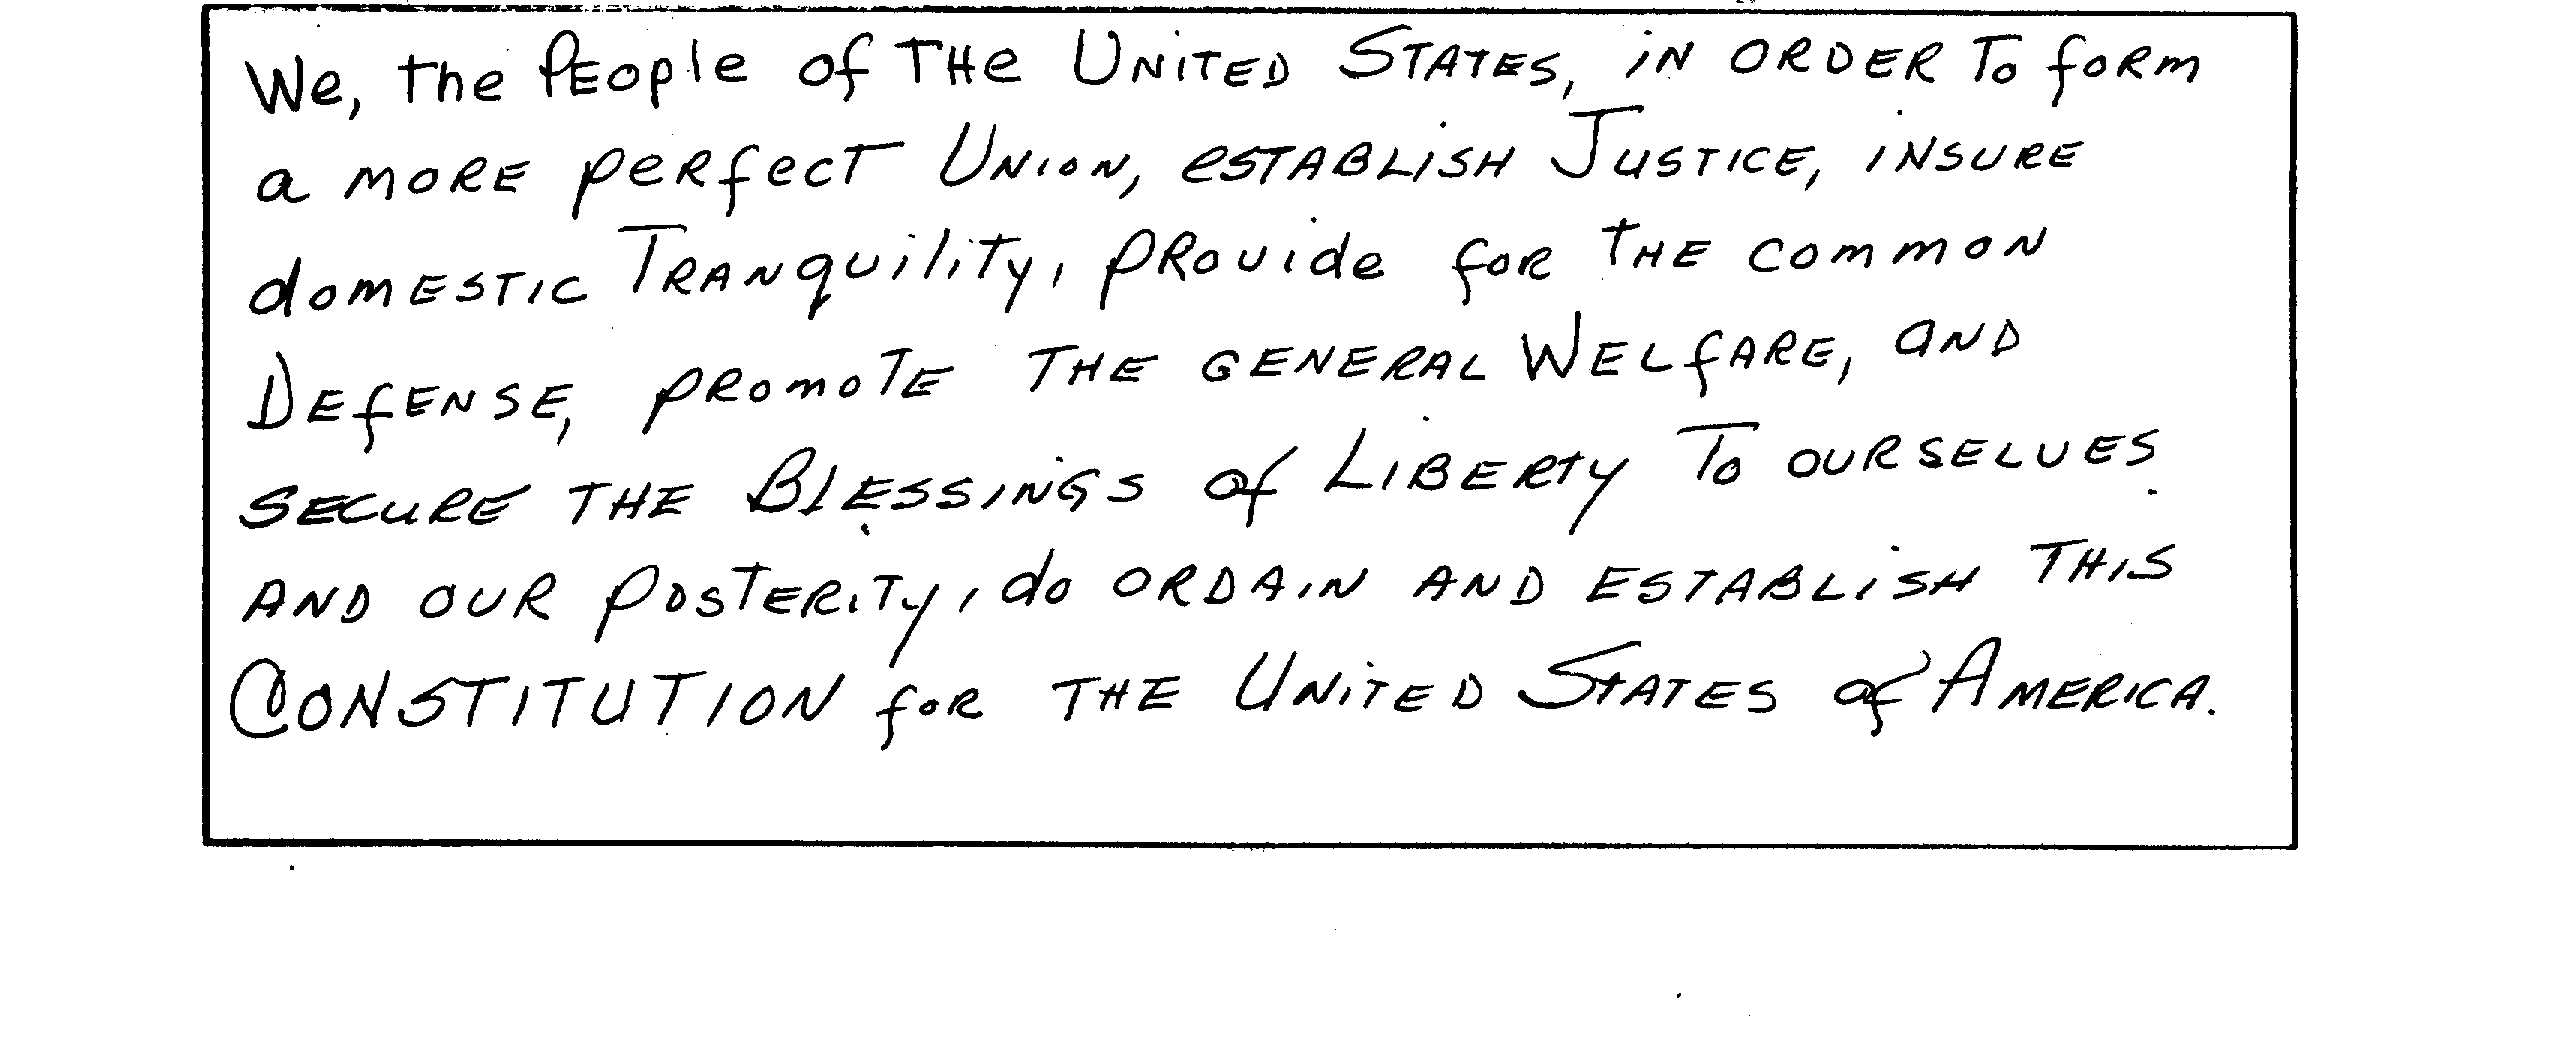 We, the People of the United States, in order to form
a more perfect Union, establish Justice, insure
domestic Tranquility, provide for the common
Defense, promote the general Welfare, and
secure the Blessings of Liberty to ourselves
and our posterity, do ordain and establish this
Constitution for the United States of America.